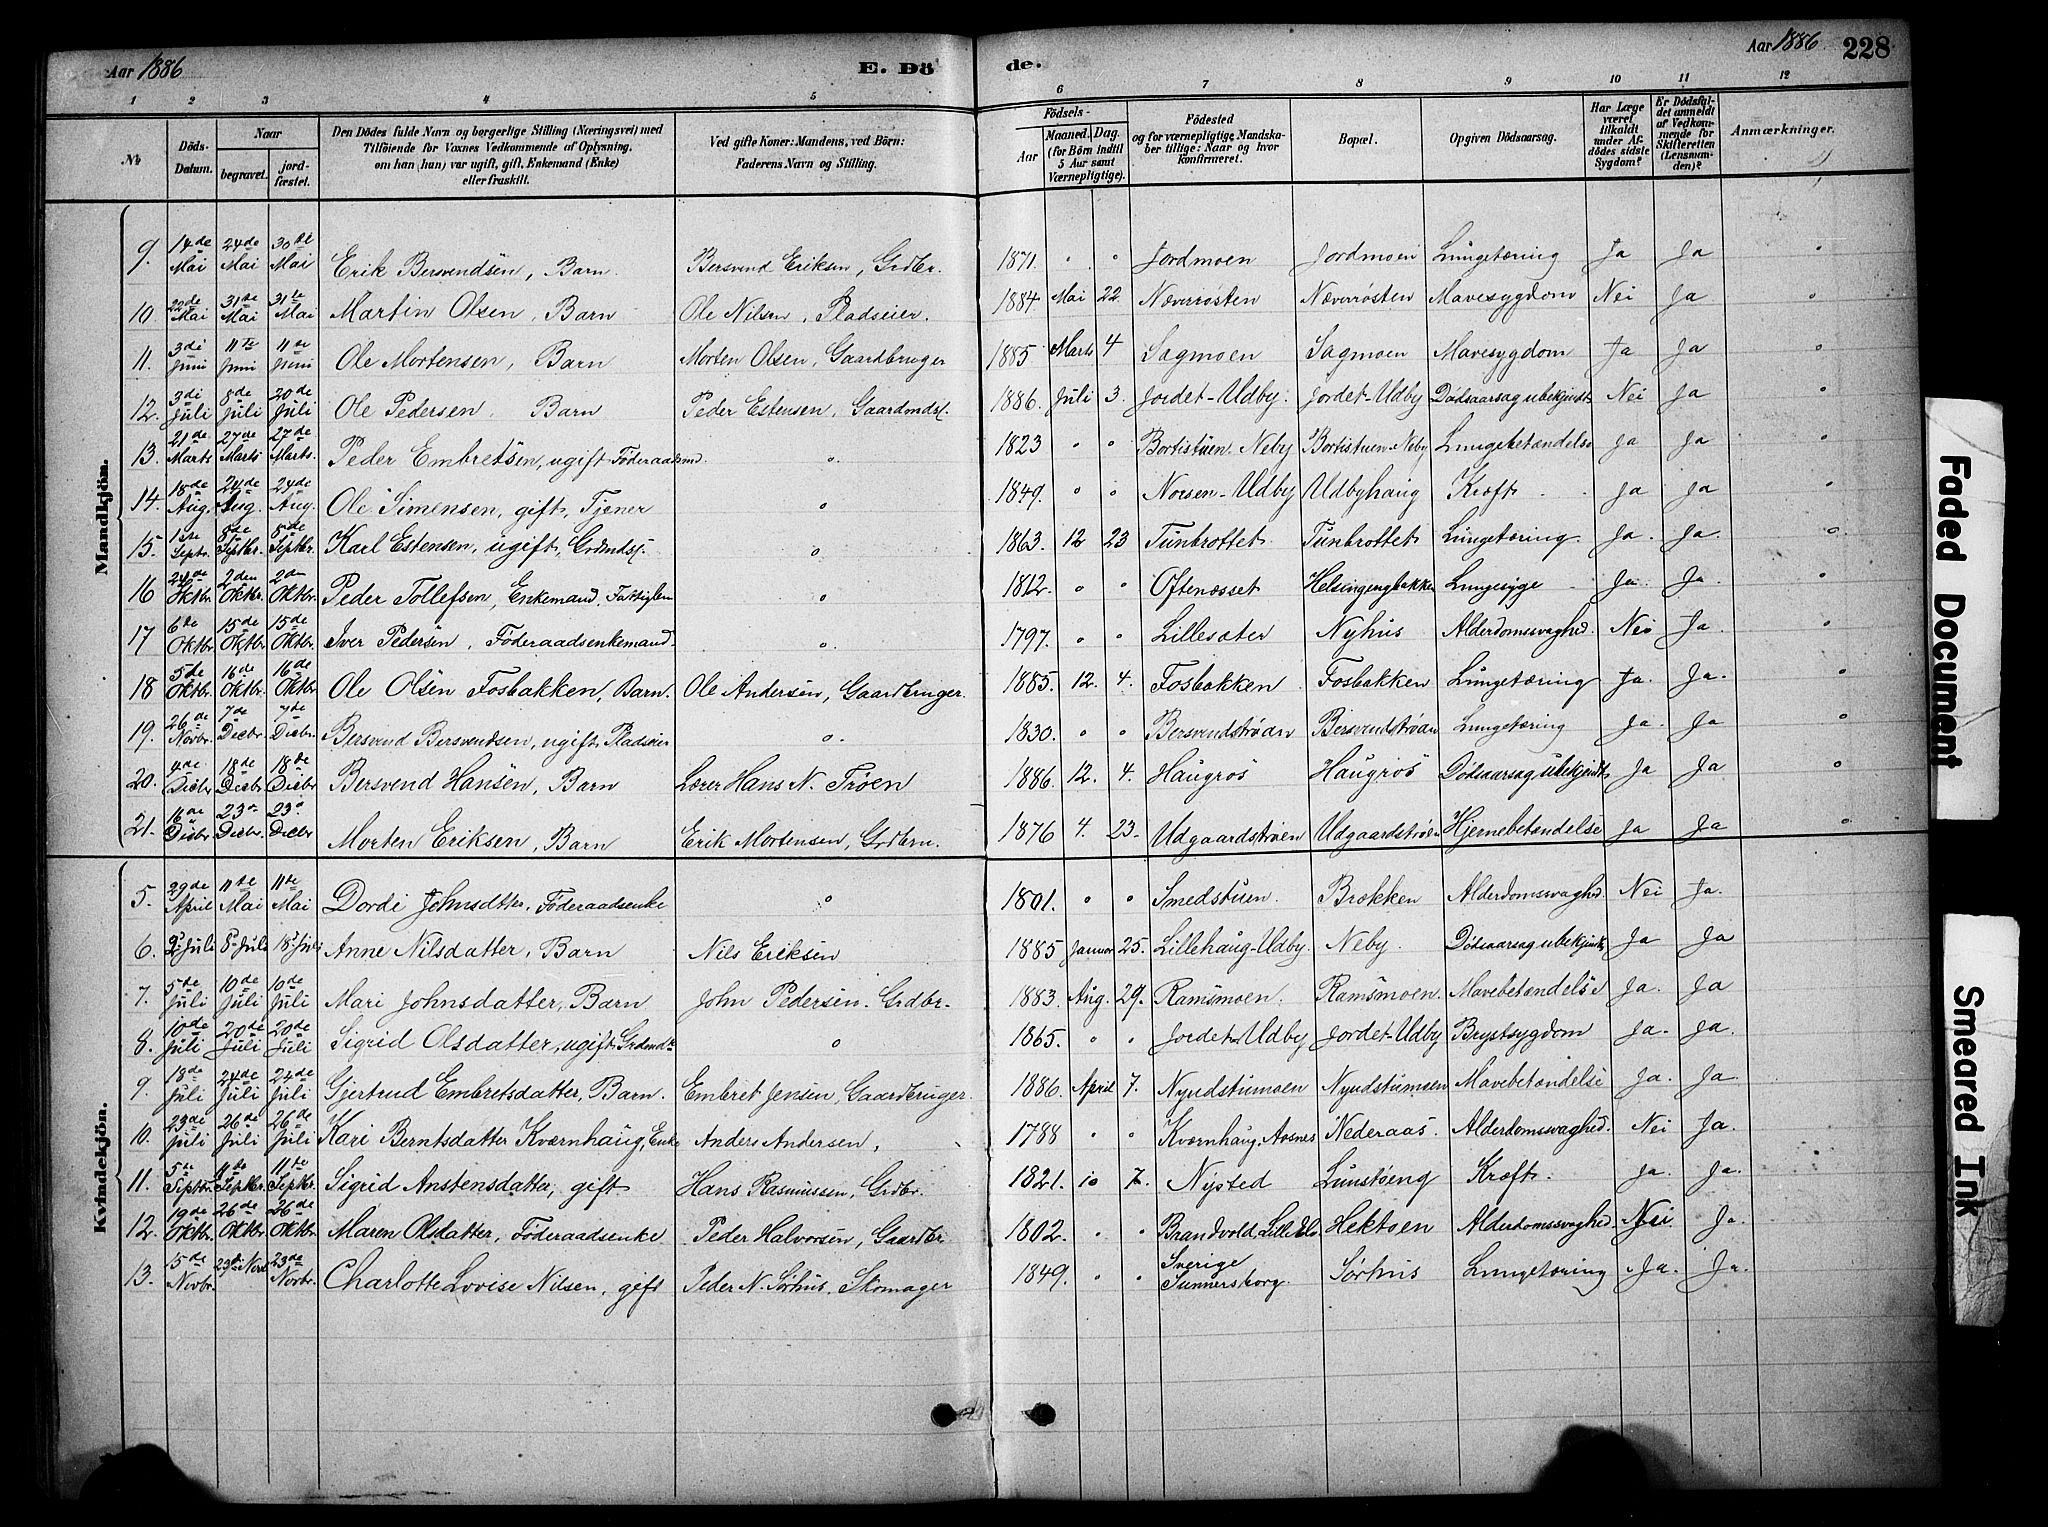 Aar 1886 E. Dö de. Aar 1886 228
1 2 3 4 5 6 7 8 9 10 11 12
No Döds-Datum. Naar begravet. jordfæstet. Den Dödes fulde Navn og borgerlige Stilling (Næringsvei) med Tilföiende for Voxnes Vedkommende af Oplysning, om han (hun) var ugift, gift, Enkemand (Enke) eller fraskilt. Ved gifte Koner: Mandens, ved Börn: Faderens Navn og Stilling. Födsels- Aar Maaned. Dag. (for Börn indtil 5 Aar samt Værnepligtige). Födested og for værnepligtige Mandskaber tillige: Naar og hvor konfirmeret. Bopæl. Opgiven Dödsaarsag. Har Læge været tilkaldt under Afdödes sidste Sygdom? Er Dödsfaldet anmeldt af Vedkommende for Skifteretten (Lensmanden)? Anmærkninger.
Mandkjön.
9. 14de Mai 24de Mai 30te Mai Erik Bersvendsen, Barn. Bersvend Eriksen, Grdbr. 1871. " " Jordmoen Jordmoen Lungetæring Ja Ja "
10. 22de Mai 31te Mai 31te Mai Martin Olsen, Barn Ole Nilsen, Pladseier. 1884 Mai 22. Næverrøsten Næverrøsten Mavesygdom Nei Ja "
11. 3di Juni 11te Juni 11te Juni Ole Mortensen, Barn Morten Olsen, Gaardbruger 1885 Marts 4 Sagmoen Sagmoen Mavesygdom Ja Ja "
12. 3di Juli 8de Juli 20de Juli Ole Pedersen. Barn Peder Estensen, Gaardmdsf. 1886. Juli 3. Jordet-Udby. Jordet-Udby Dødsaarsag ubekjendt Nei Ja "
13. 21de Marts 27de Marts 27de Marts. Peder Embretsen, ugift Føderaadsmd. " 1823 " " Bortistuen Neby Bortistuen Neby Lungebetændelse Ja Ja "
14. 18de Aug. 24de Aug. 24de Aug. Ole Simensen, gift, Tjener " 1849. " " Norsen-Udby Udbyhaug Kræft. Ja Ja "
15. 1ste Septr. 8de Septbr. 8de Septbr. Karl Estensen, ugift, Grdmdsf. " 1863. 12 23 Tunbrottet Tunbrottet Lungetæring. Ja. Ja. "
16 24de Oktbr 2den Oktbr. 2den Oktbr. Peder Tollefsen, Enkemand, Fattiglem " 1812. " " Oftenæsset Helsingengbakken Lungesyge Ja. Ja. "
17 6te Oktbr. 15de Oktbr. 15de Oktbr. Iver Pedersen, Føderaadsenkemand. " 1797. " " Lillesæter Nyhus Alderdomssvaghed. Nei Ja. "
18 5te Oktbr. 16de Oktbr. 16de Oktbr. Ole Olsen Fosbakken, Barn. Ole Andersen, Gaardbruger. 1885. 12. 4. Fosbakken Fosbakken Lungetæring Ja. Ja. "
19. 26de Novbr. 7de Decbr. 7de Decbr. Bersvend Bersvendsen, ugift Pladseier " 1830. " " Bersvendstrøen Bersvendstrøen Lungetæring Ja. Ja "
20. 4de Decbr 18de Decbr 18de Decbr Bersvend Hansen, Barn Lærer Hans N. Trøen 1886 12. 4. Haugros Haugros Dødsaarsag ubekjendt Ja Ja "
21. 16de Decbr. 23de Decbr. 23de Decbr Morten Eriksen, Barn Erik Mortensen, Grdbru. 1876 4. 23. Udgaardstrøen Udgaardstrøen Hjernebetændelse Ja Ja "
Kvindekjön.
5. 29de April 11te Mai 11te Mai Dordi Johnsdtter, Føderaadsenke " 1801. " " Smedstuen. Brækken Alderdomssvaghed Nei Ja.
6. 2. Juli 8. Juli 18. Juli Anne Nilsdatter, Barn Nils Eriksen 1885 Januar 25. Lillehaug-Udby. Neby. Dødsaarsag ubekjendt Ja Ja
7. 5te Juli 10de Juli 10de Juli Mari Johnsdatter, Barn John Pedersen. Grdbr. 1883. Aug. 29. Ramsmoen. Ramsmoen. Mavebetændelse Ja. Ja
8. 10de Juli 20de Juli 20de Juli Sigrid Olsdatter, ugift " 1865. " " Jordet-Udby Jordet-Udby Brystsygdom Ja. Ja.
9. 18de Juli 24de Juli 24de Juli Gjertrud Embretsdatter, Barn. Embret Jensen, Gaardbruger. 1886. April 7. Nyudstumoen Nyudstumoen Mavebetændelse Ja. Ja.
10. 23de Juli 26de Juli 26de Juli Kari Berntsdatter Kværnhaug, Enke Anders Andersen, 1788 " " Kværnhaug, Aasnes Nederaas. Alderdomssvaghed. Nei Ja.
11. 5te Septbr. 11te Septbr. 11te Septbr. Sigrid Anstensdatter, gift Hans Rasmussen, Grdbr. 1821. 10 7. Nysted Lunstøeng Kræft. Ja. Ja.
12. 19de Oktbr. 26de Oktbr 26de Oktbr. Maren Olsdatter, Føderaadsenke Peder Halvorsen, Gaardbr. 1802. " " Brandvold, Lille Elv. Hektoen Alderdomssvaghed. Nei Ja.
13. 15de Novbr. 23de Novb 23de Novbr. Charlotte Lovise Nilsen, gift Peder N. Sørhus, Skomager 1849. " " Sverige Sunnersborg. Sørhus Lungetæring Ja. Ja.
Faded Document
Smeared Ink